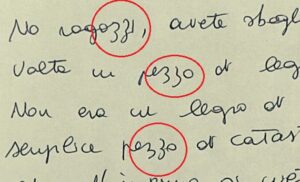 No ragazzi, avete sbagl
volta un pezzo di leg
Non era un legno di
semplice pezzo di catas